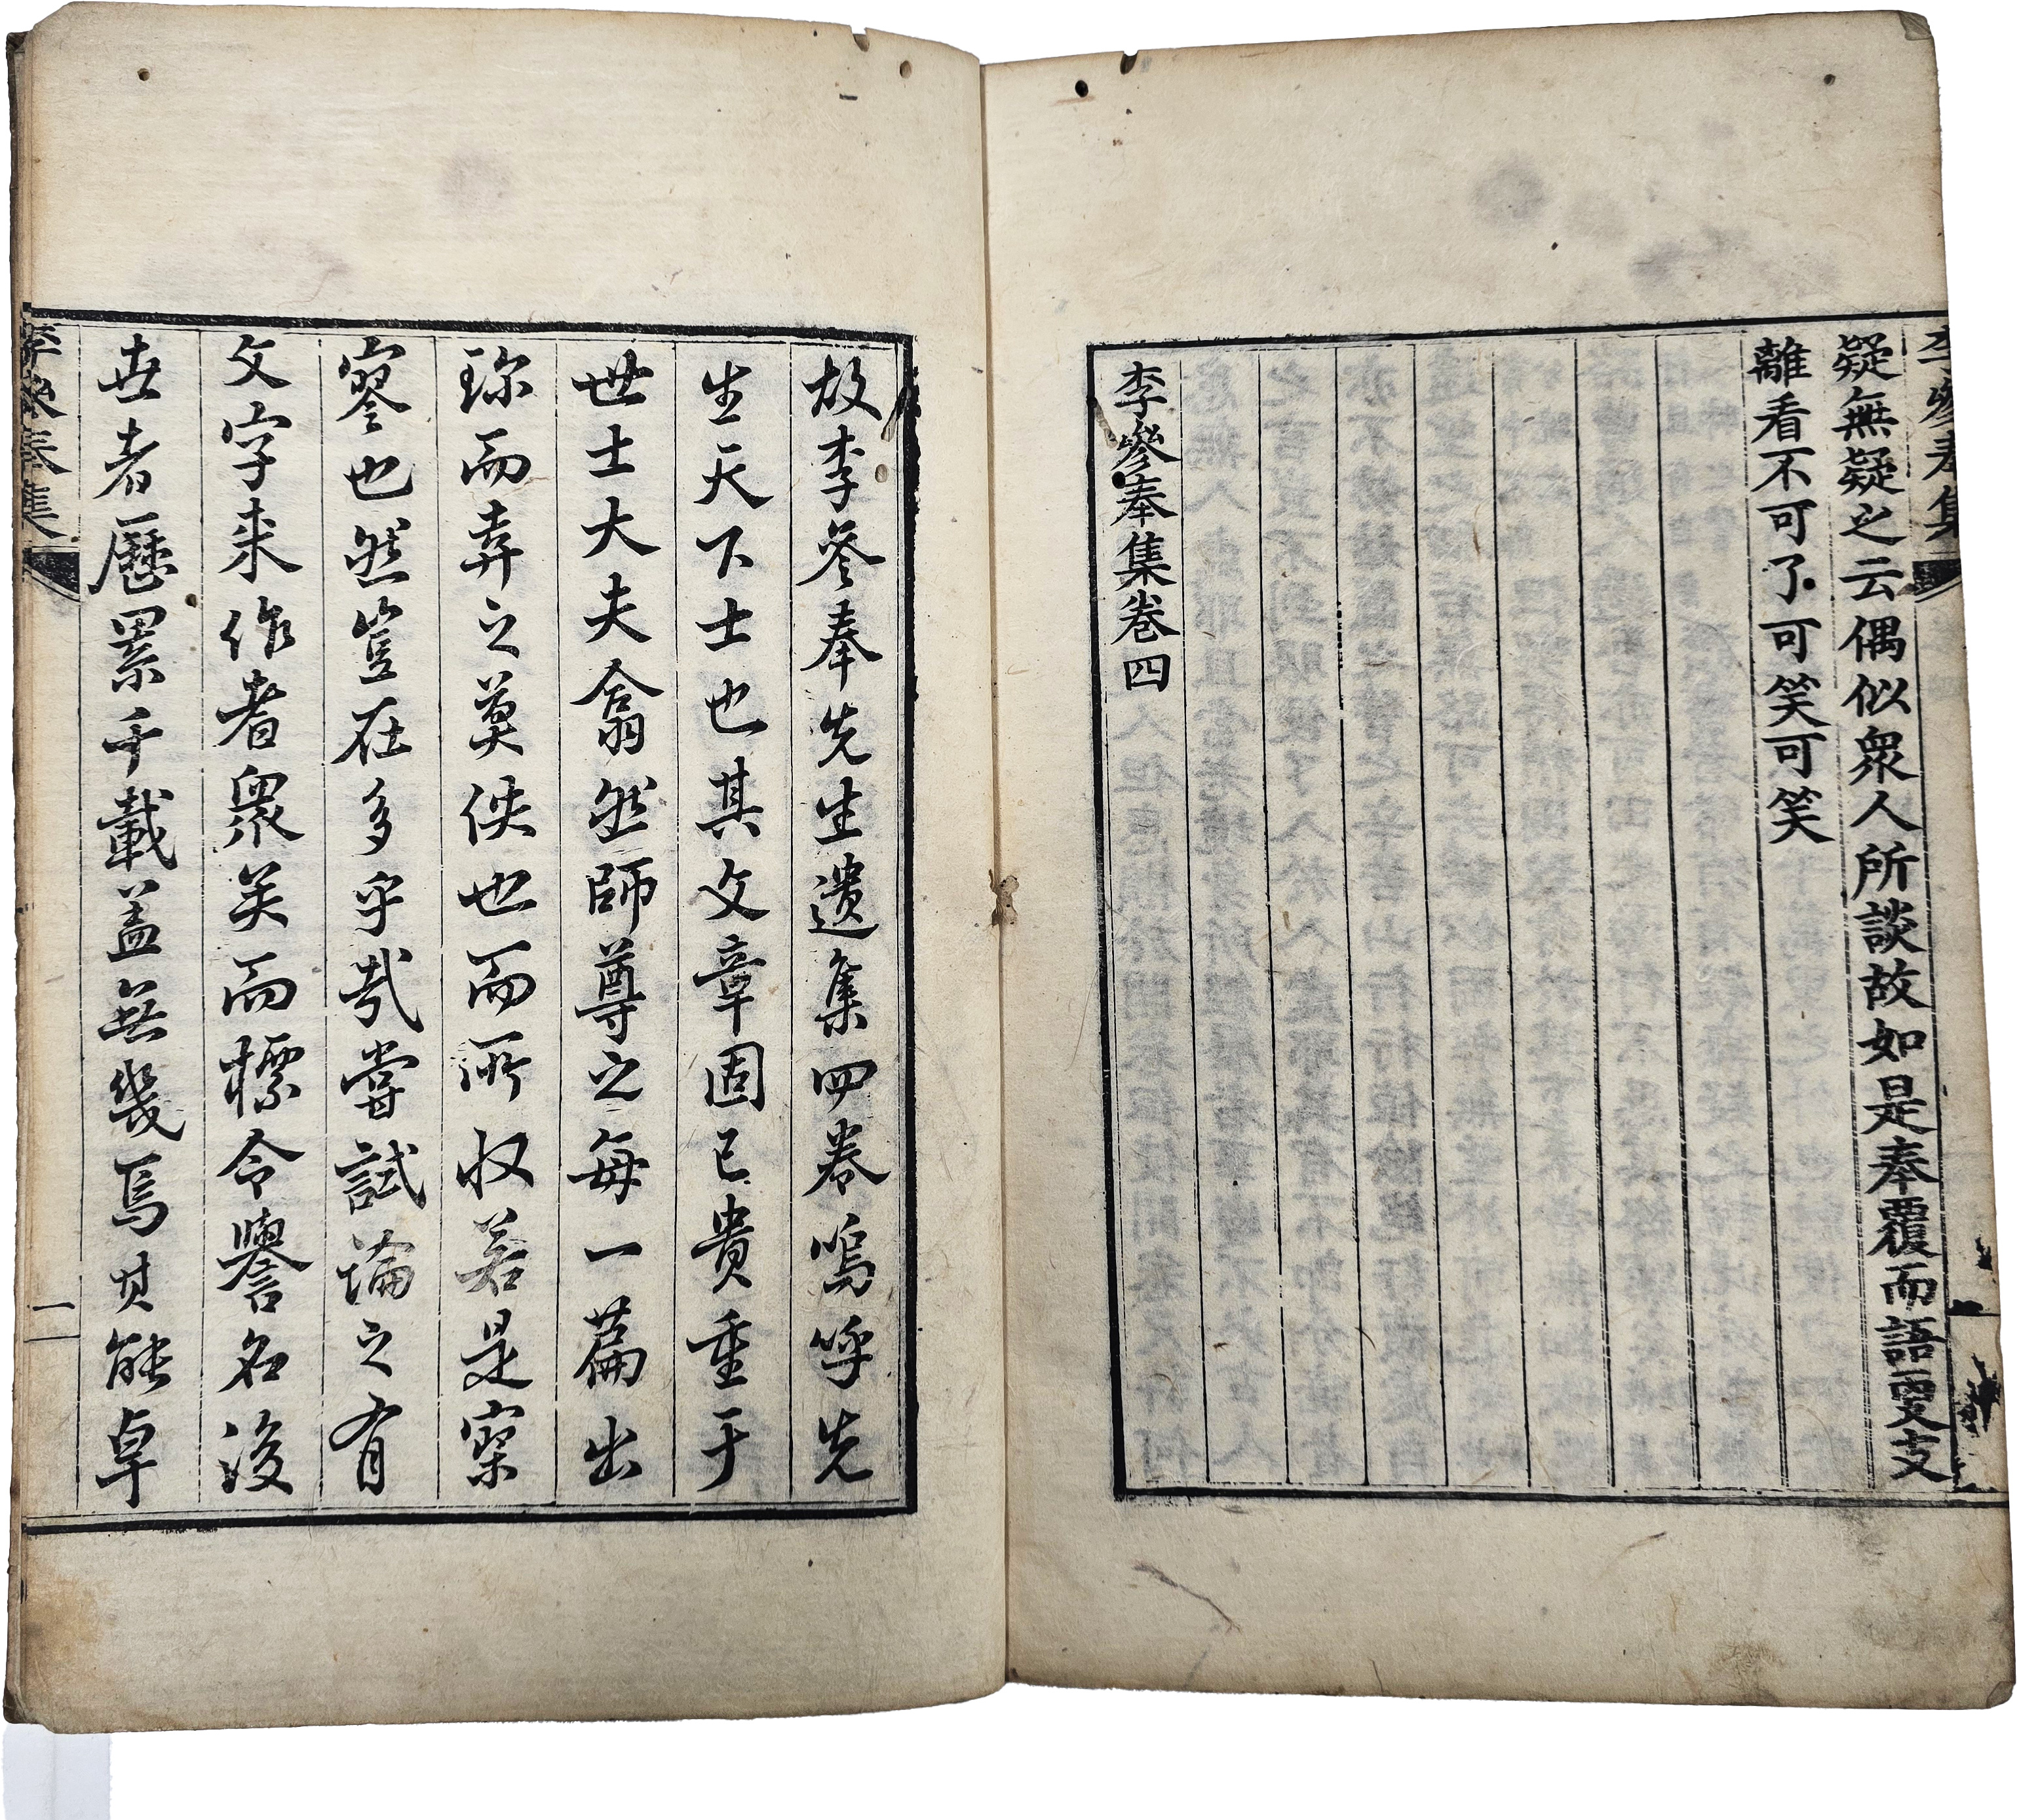 疑無疑之云偶似衆人所談故如是奉覆而語更支
離看不可了可笑可笑
李參奉集卷四
故李參奉先生遺集四卷嗚呼先
生天下士也其文章固已貴重于
世士大夫翕然師尊之每一篇出
珎而弆之莫佚也而所收若是寥
寥也然豈在多乎哉嘗試論之有
文字来作者衆矣而標令譽名後
世者歷累千載盖無幾焉其能卓
李參奉集
一